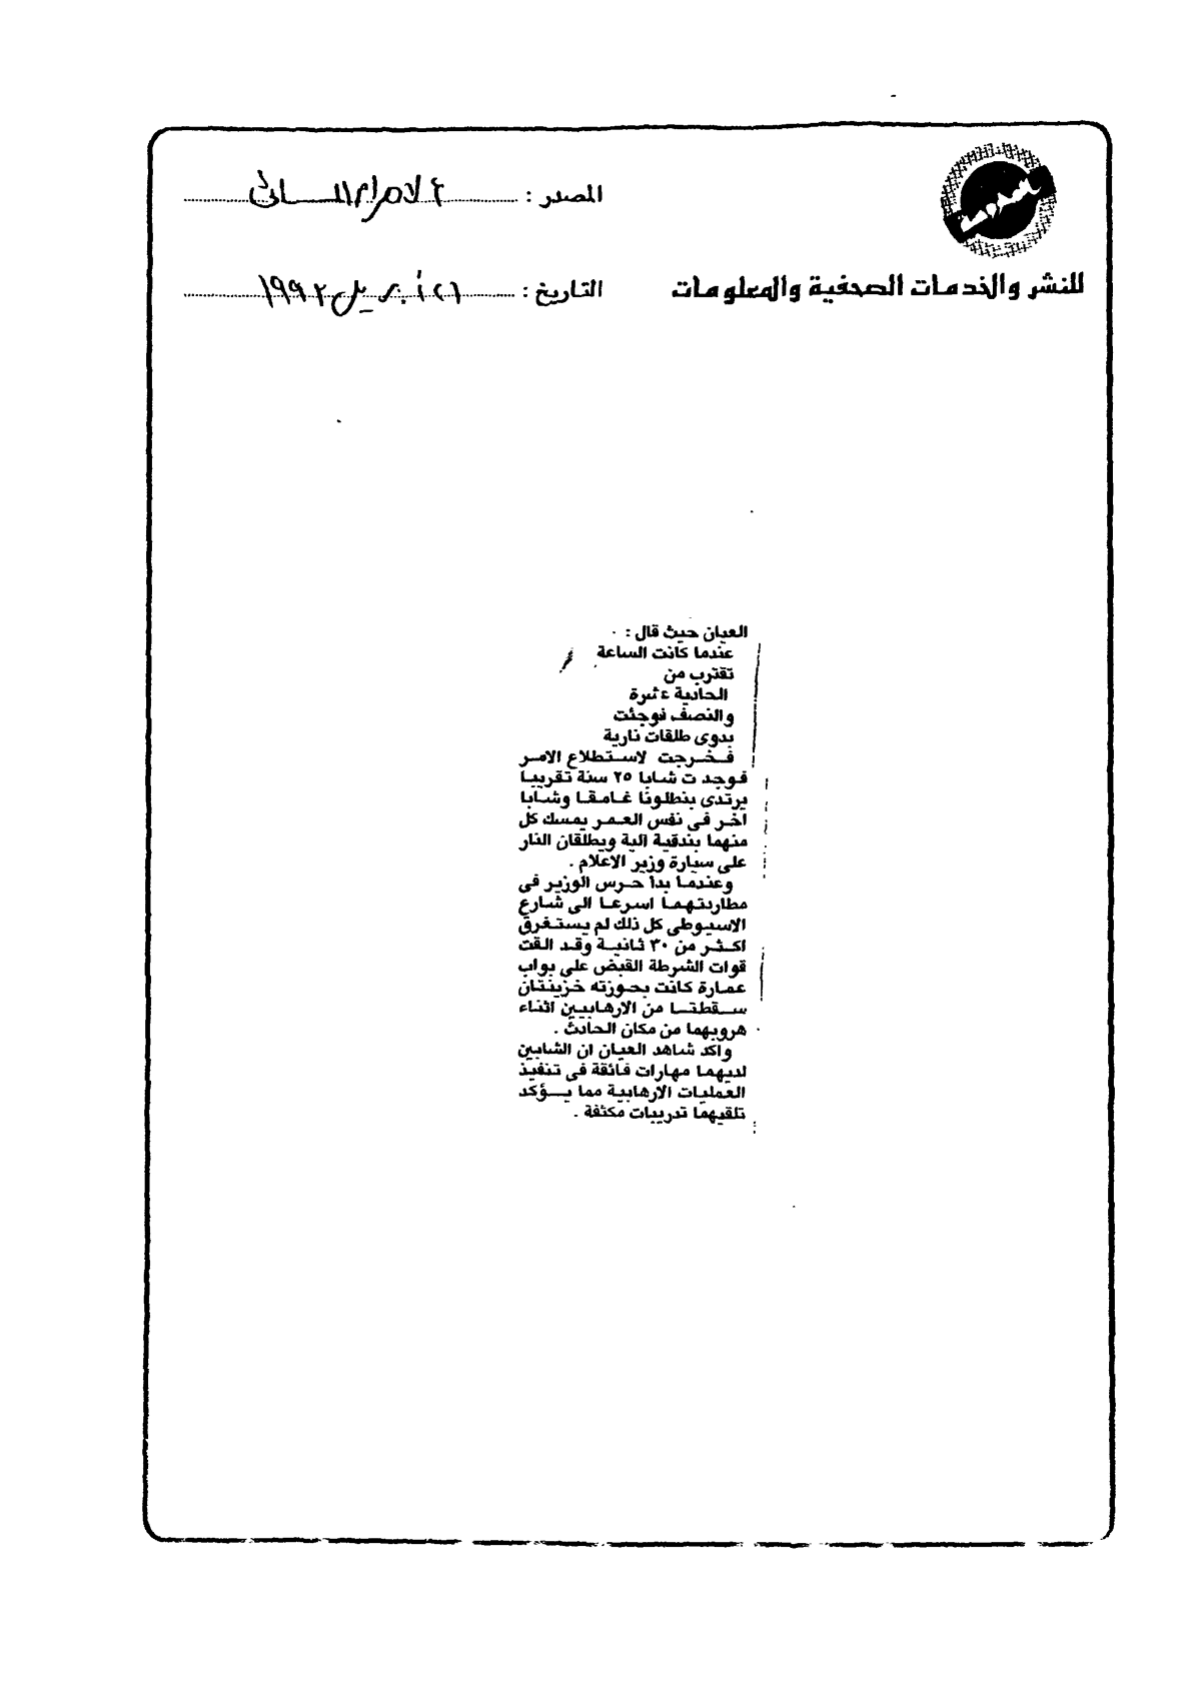 المصدر : الاهرام المسائى
للنشر والخدمات الصحفية والمعلومات
التاريخ : ٢١ أبريل ١٩٩٢
العيان حيث قال :
عندما كانت الساعة
تقترب من
الحادية عشرة
والنصف فوجئت
بدوى طلقات نارية
فخرجت لاستطلاع الامر
فوجدت شابا ٢٥ سنة تقريبا
يرتدى بنطلونا غامقا وشابا
اخر فى نفس العمر يمسك كل
منهما بندقية الية ويطلقان النار
على سيارة وزير الاعلام .
وعندما بدا حرس الوزير فى
مطاردتهما اسرعا الى شارع
الاسيوطى كل ذلك لم يستغرق
اكثر من ٣٠ ثانية وقد القت
قوات الشرطة القبض على بواب
عمارة كانت بحوزته خزينتان
سقطتا من الارهابيين اثناء
هروبهما من مكان الحادث .
واكد شاهد العيان ان الشابين
لديهما مهارات فائقة فى تنفيذ
العمليات الارهابية مما يؤكد
تلقيهما تدريبات مكثفة .